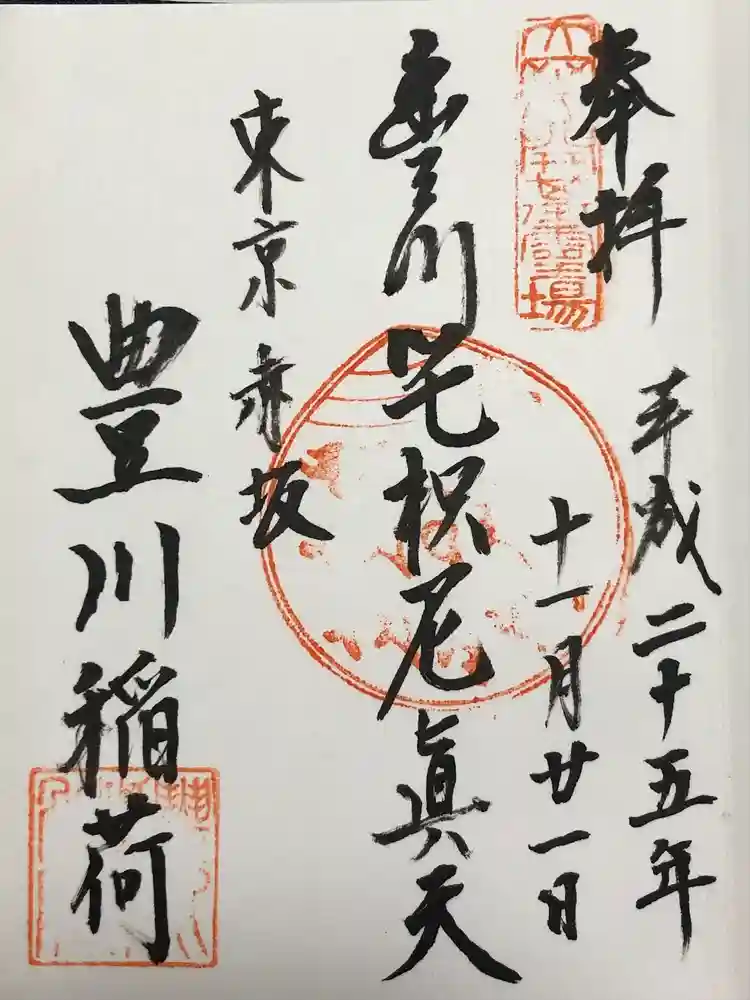 奉拝
平成二十五年
十一月廿一日
豊川吒枳尼眞天
東京赤坂
豊川稲荷